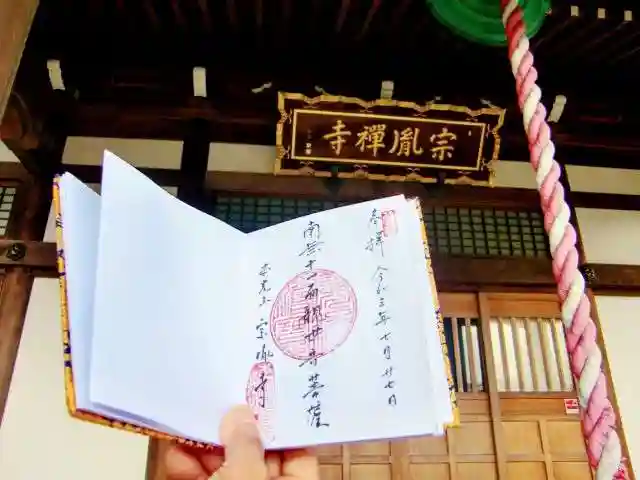 寺禪胤宗
奉拝 令和三年七月廿七日
南無十一面観世音菩薩
宗胤寺